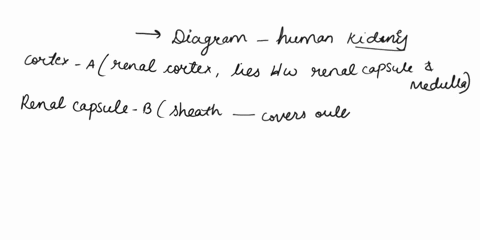 → Diagram - human Kidneys
Cortex - A (renal cortex, lies b/w renal capsule &
Medulla)
Renal capsule - B (sheath — covers oute